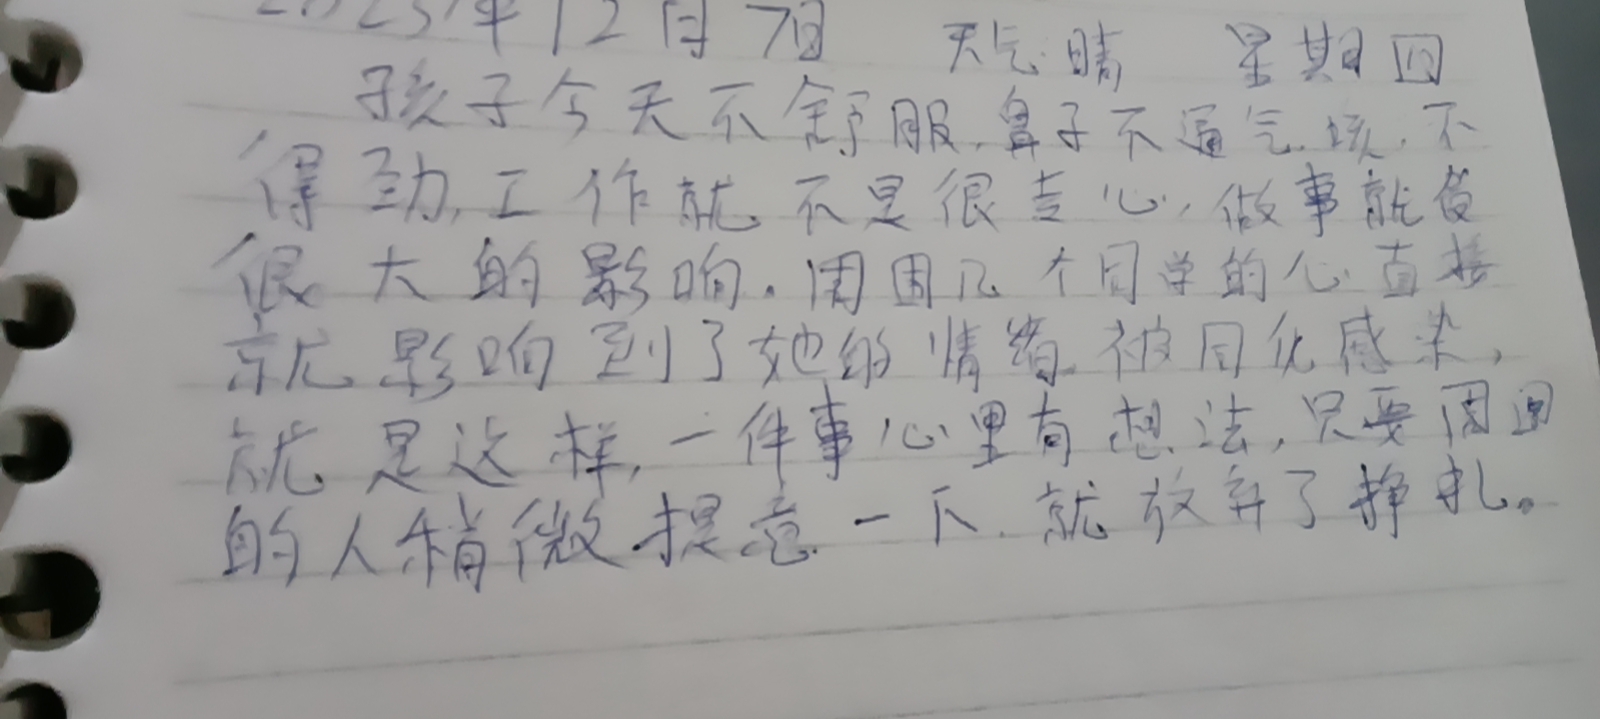 2023年12月7日 天气:晴 星期四
孩子今天不舒服,鼻子不通气,咳,不
得劲,工作就不是很走心,做事就有
很大的影响。周围几个同学的心直接
就影响到了她的情绪,被同化感染,
就是这样,一件事心里有想法,只要周围
的人稍微提意一下,就放弃了挣扎。